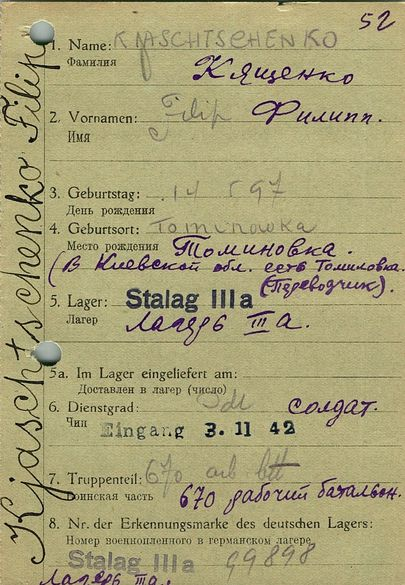 52
1. Name: KJASCHTSCHENKO
Фамилия
Кященко
2. Vornamen: Filip Филипп.
Имя
3. Geburtstag: 14
День рождения
4. Geburtsort: Tominowka
Место рождения Томиновка.
(В Киевской обл. есть Томиловка.
(Переводчик).
5. Lager: Stalag IIIa
Лагерь Лагерь III А.
5a. Im Lager eingeliefert am:
Доставлен в лагерь (число)
6. Dienstgrad: Sdt солдат.
Чин Eingang 3. 11 42
7. Truppenteil: 670 arb btt
Воинская часть 670 рабочий батальон.
8. Nr. der Erkennungsmarke des deutschen Lagers:
Номер военнопленного в германском лагере
Stalag IIIa 99898
Лагерь IIIа.
Kjaschtschenko Filip